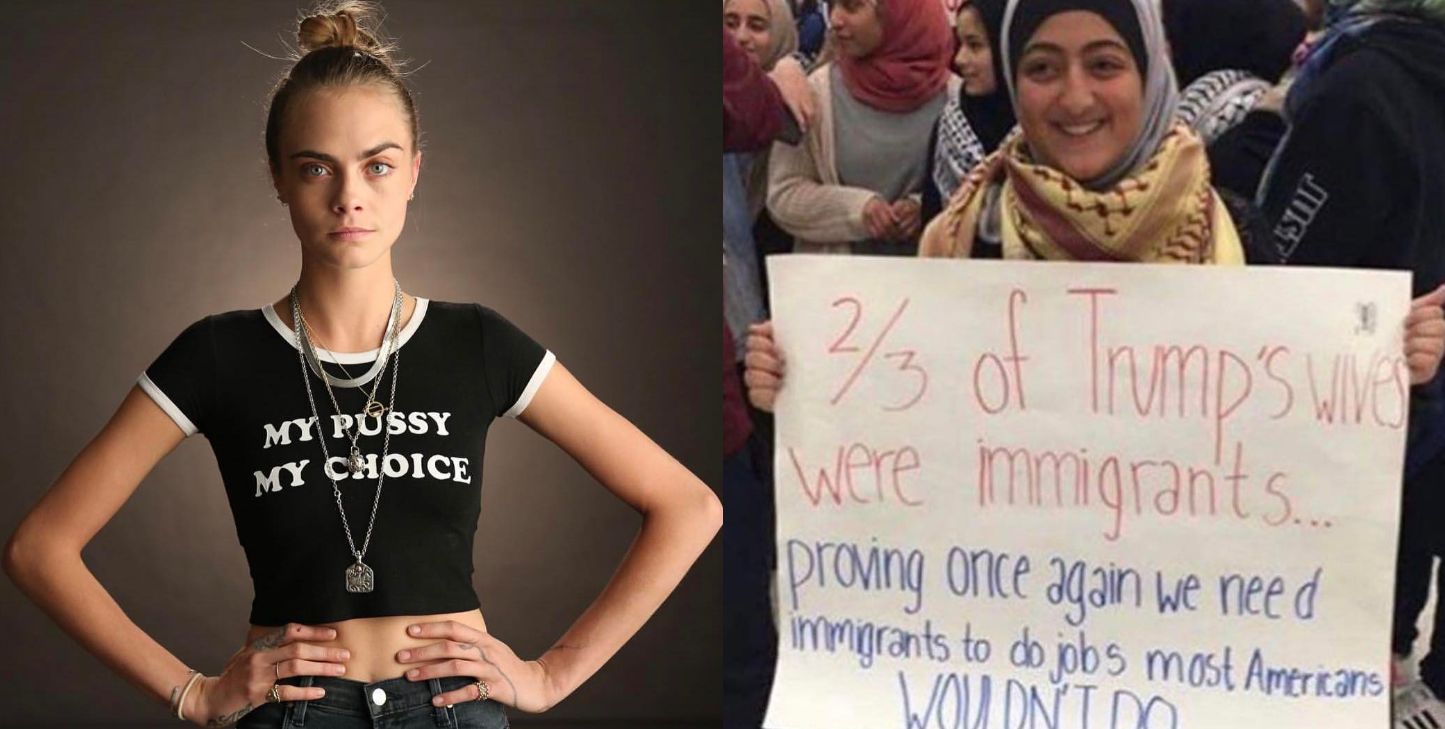 MY PUSSY
MY CHOICE
2/3 of Trump's wives
were immigrants...
proving once again we need
immigrants to do jobs most Americans
WOULDN'T DO